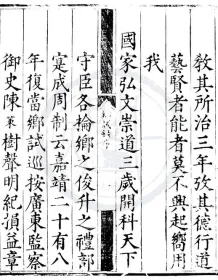 敎其所治三年攷其德行道
藝賢者能者莫不興起嚮用
我
國家弘文崇道三歲開科天下
守臣各掄鄉之俊升之禮部
寔成周制云嘉靖二十有八
年復當鄉試巡按廣東監察
御史陳樹聲明紀湏益章